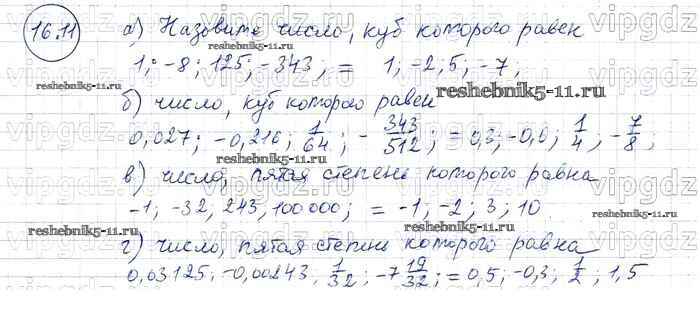 16.11 а) Назовите число, куб которого равен
1; -8; 125; -343; = 1; -2; 5; -7;
б) число, куб которого равен
0,027; -0,216; 1/64; -343/512; = 0,3; -0,6; 1/4; -7/8;
в) число, пятая степень которого равна
-1; -32, 243, 100000; = -1; -2; 3; 10
г) число, пятая степень которого равна
0,03125; -0,00243, 1/32; -7 19/32; = 0,5; -0,3; 1/2; 1,5
vipgdz
reshebnik5-11.ru